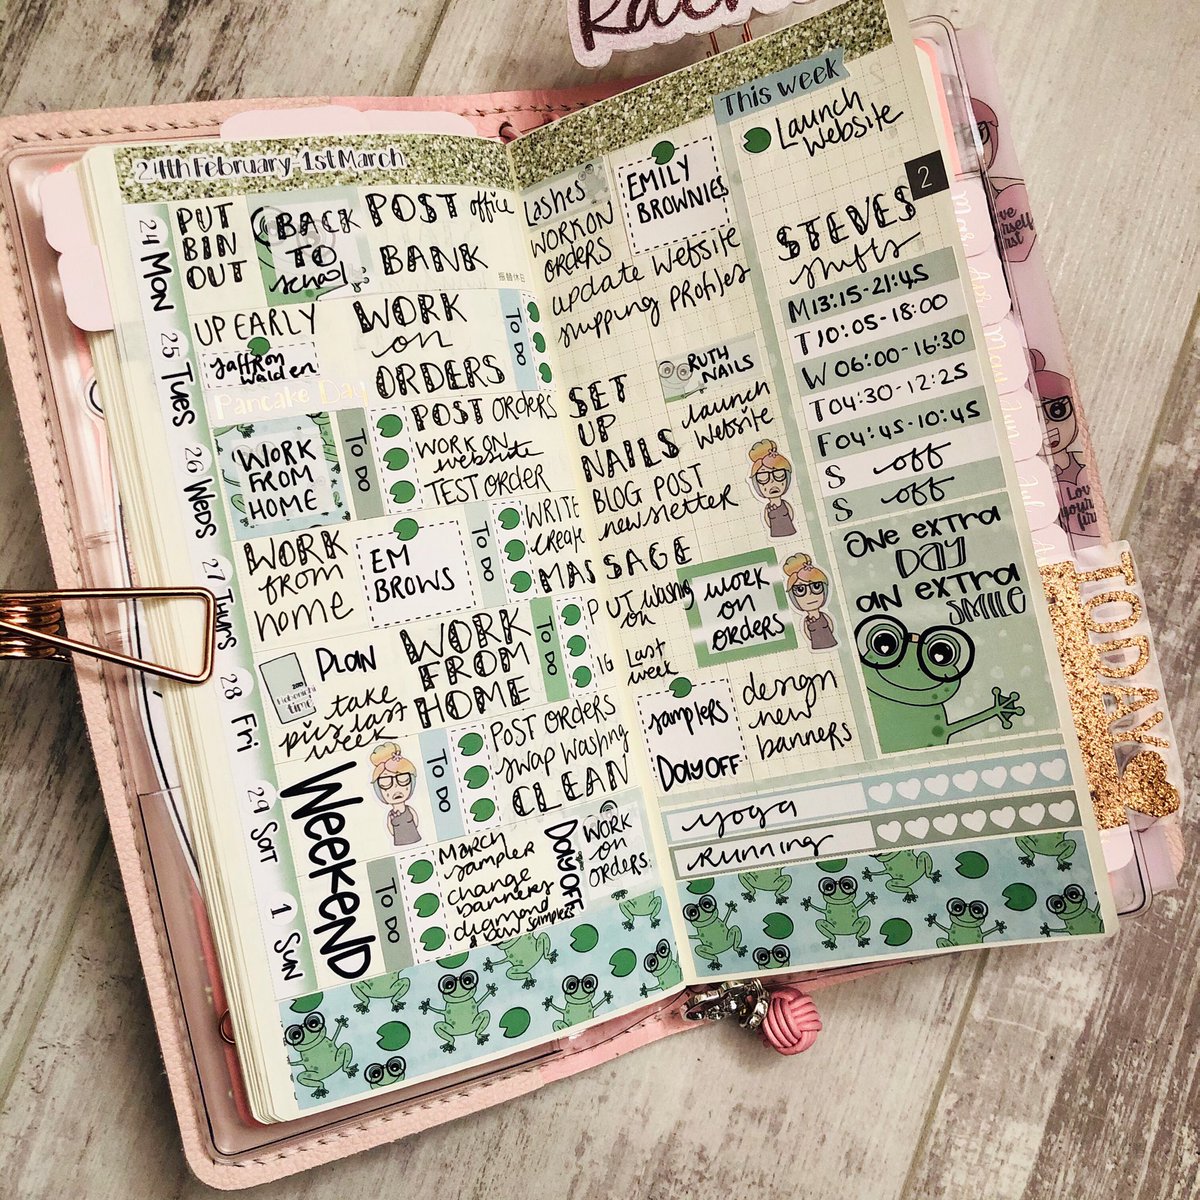 Rach
24th February - 1st March
24 MON
PUT
BIN
OUT
BACK
TO
school
POST office
BANK
lashes
WORK ON
ORDERS
EMILY
BROWNIES
update website
shipping profiles
25 TUES
UP EARLY
saffron
walden
Pancake Day
WORK
on
ORDERS
TO DO
SET
UP
NAILS
RUTH
NAILS
launch
website
26 WEDS
WORK
FROM
HOME
TO DO
POST ORDERS
WORK ON
website
TEST ORDER
BLOG POST
newsletter
27 THURS
WORK
from
home
EM
BROWS
TO DO
WRITE
create
MASSAGE
PUT washing
on
WORK
ON
ORDERS
28 FRI
PLAN
take
pics last
week
WORK
FROM
HOME
TO DO
Last
week
29 SAT
WEEKEND
TO DO
POST ORDERS
swap washing
CLEAN
samplers
DAY OFF
design
new
banners
1 SUN
TO DO
MARCH
sampler
change
banners
diamond
DAY OFF
WORK
on
ORDERS
This week
Launch
website
2
STEVES
shifts
M 13:15-21:45
T 10:05-18:00
W 06:00-16:30
T 04:30-12:25
F 04:45-10:45
S off
S off
ONE EXTRA
DAY
AN EXTRA
SMILE
yoga
RUNNING
TODAY